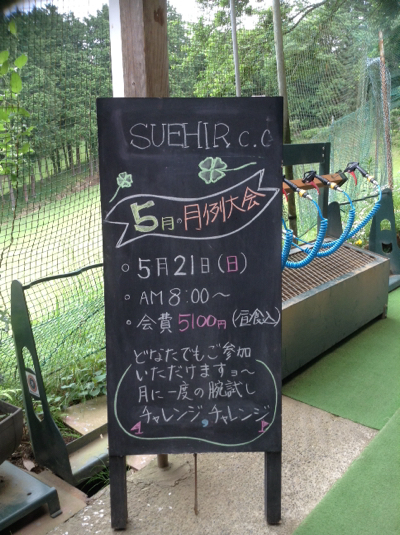 SUEHIR C.C
5月の月例大会
○ 5月21日(日)
○ AM 8:00〜
○ 会費 5100円(昼食込)
どなたでもご参加
いただけますョ〜
月に一度の腕試し
チャレンジ,チャレンジ